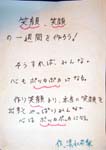 笑顔、笑顔
の一週間を作ろう!
そうすれば、みんな。
心もポッカポカになる。
作り笑顔より、本当に笑顔を
出すとポッカリみんな。
心はポッカポカになる。
作